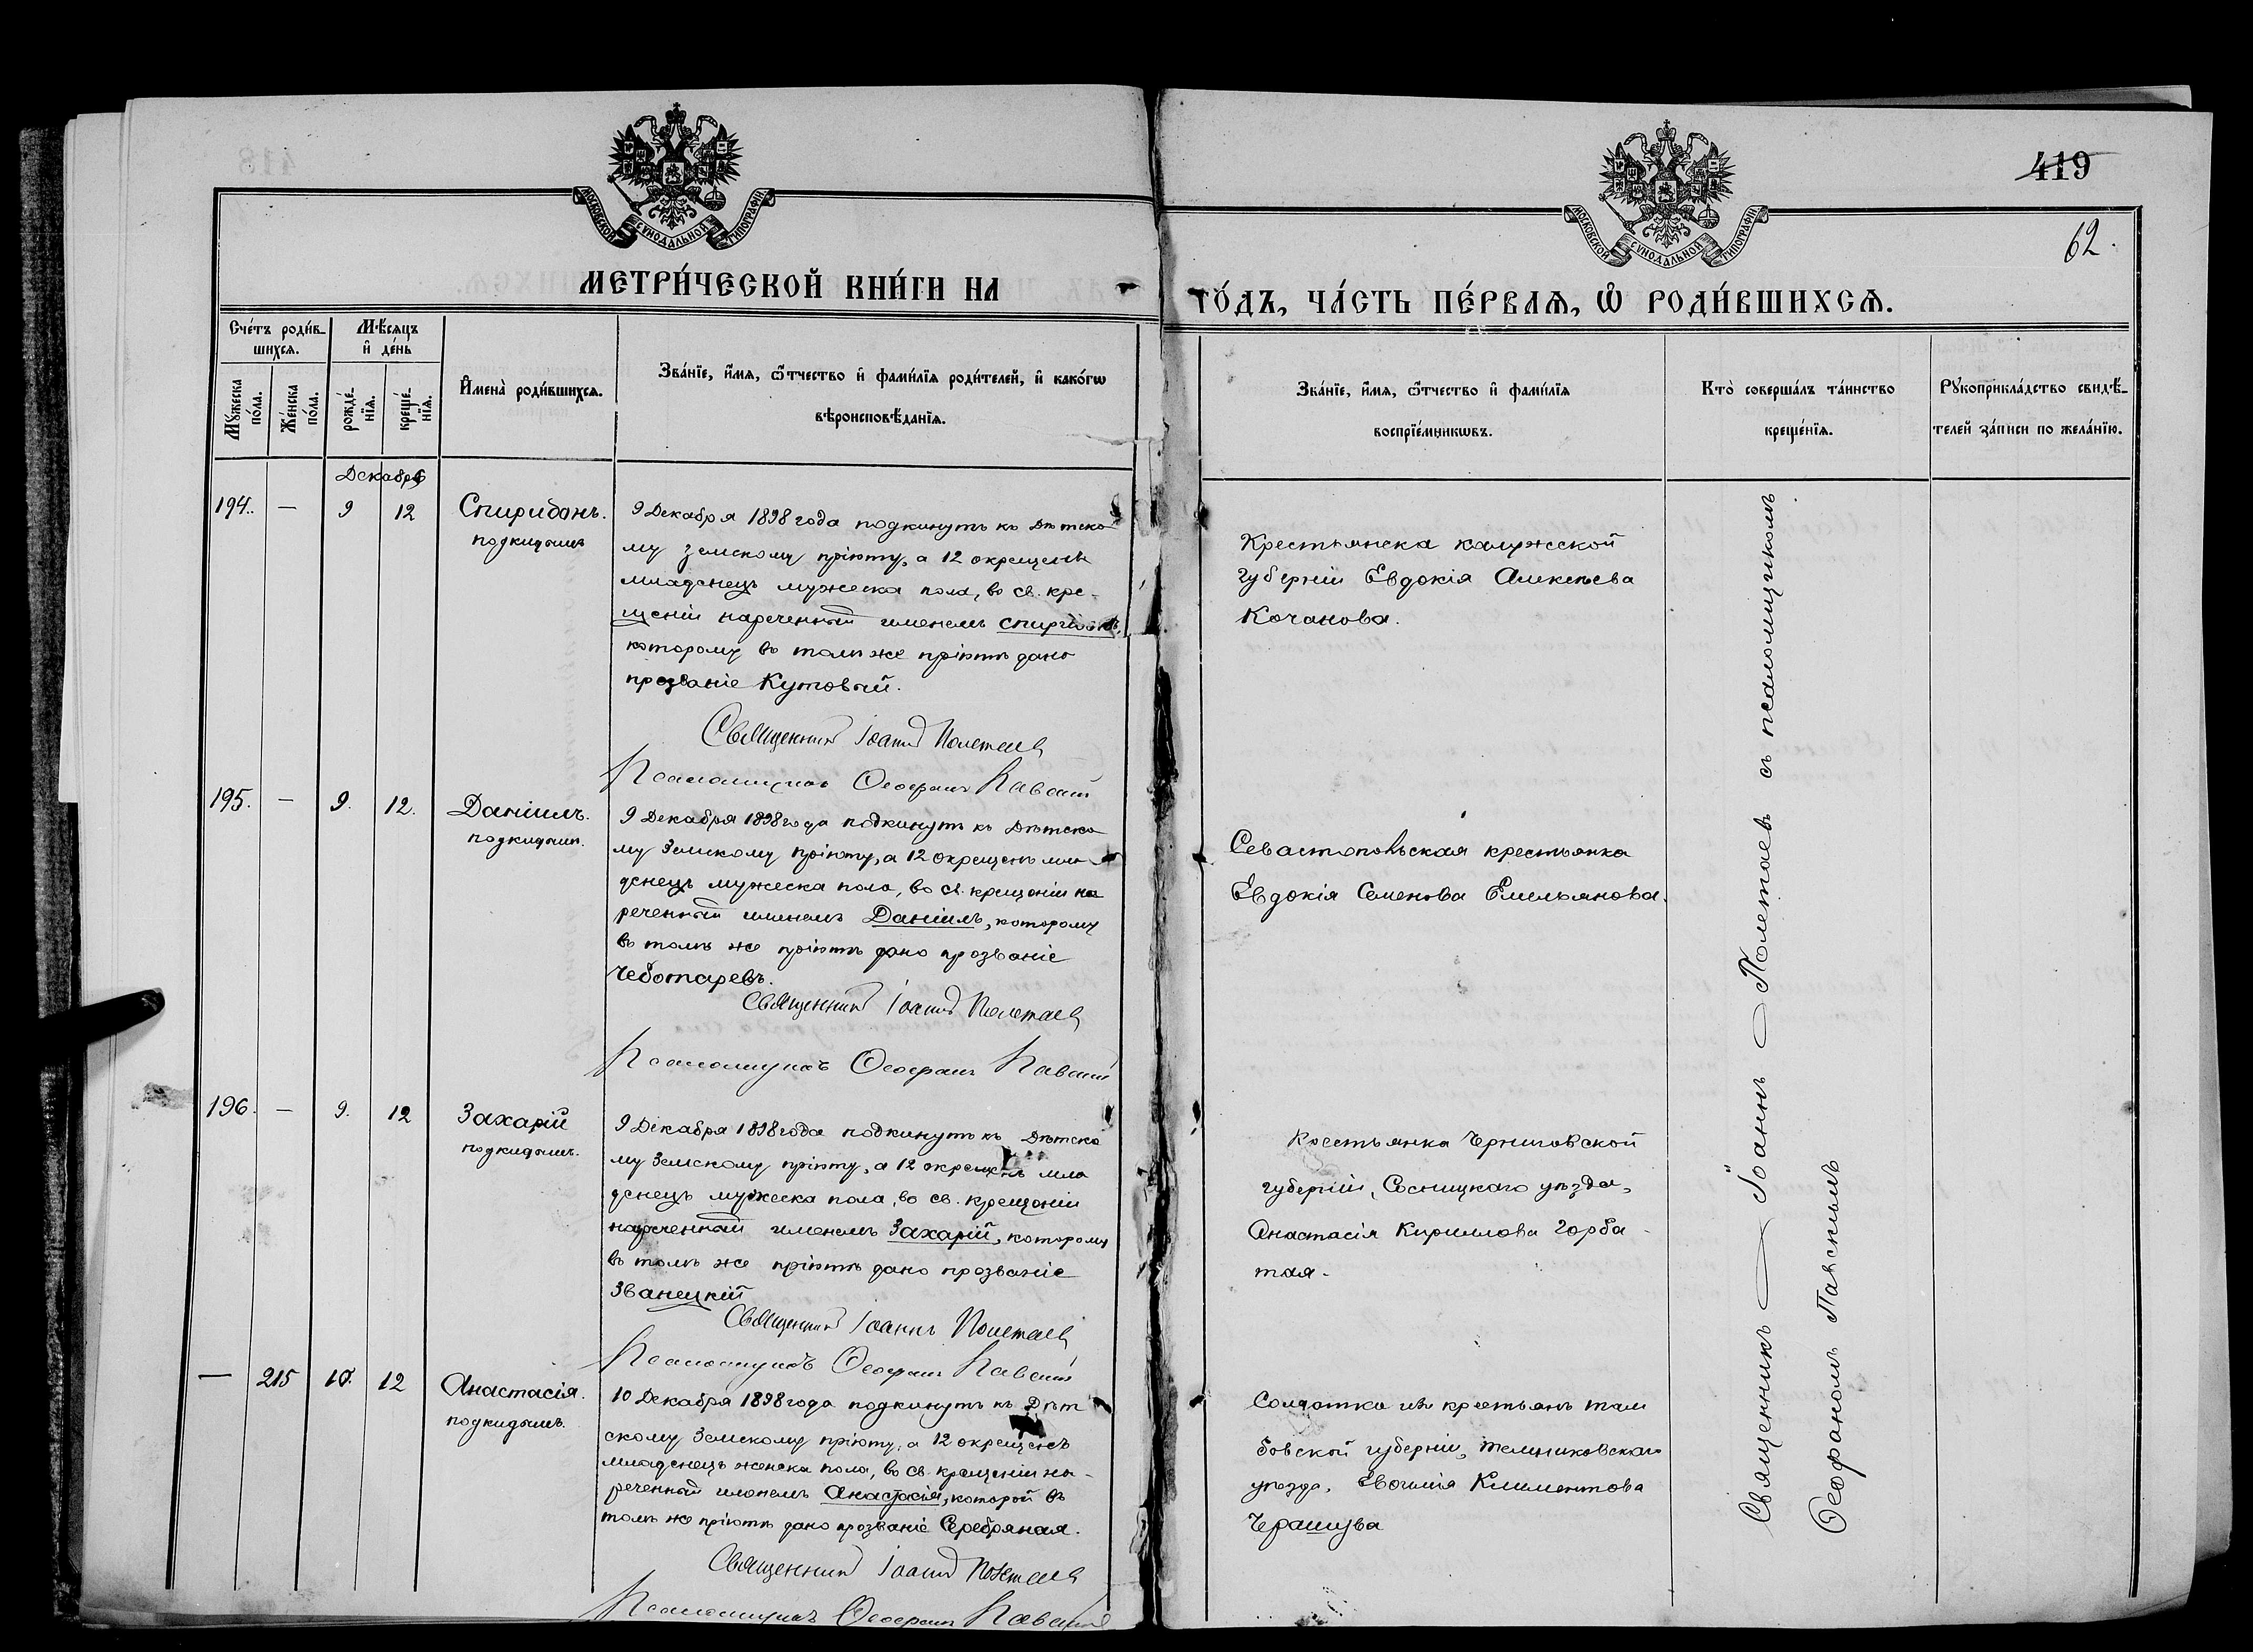 419
62.
МОСКОВСКОЙ СѴНОДАЛЬНОЙ ТИПОГРАФІИ
МОСКОВСКОЙ СѴНОДАЛЬНОЙ ТИПОГРАФІИ
МЕТРИ́ЧЕСКОЙ КНИ́ГИ НА
ГО́ДЪ, ЧА́СТЬ ПЕ́РВАѦ, Ѡ҆ РОДИ́ВШИХСѦ.
Сче́тъ роди́в-
шихсѧ.
Мѣ́сяцъ
и҆ де́нь
Мꙋ́жеска по́ла.
Же́нска по́ла.
рожде́-
нїѧ.
креще́-
нїѧ.
И҆мена̀ роди́вшихсѧ.
Зва́нїе, и҆́мѧ, ѻ҆́тчество и҆ фами́лїѧ роди́телей, и҆ како́гѡ
вѣроисповѣ́данїѧ.
Зва́нїе, и҆́мѧ, ѻ҆́тчество и҆ фами́лїѧ
воспрїе́мникѡвъ.
Кто̀ соверша́лъ та́инство
креще́нїѧ.
Рꙋкоприкла́дство свидѣ́-
телей за́писи по жела́нїю.
Декабря
194. — 9 12
Спиридонъ.
подкидышъ
9 Декабря 1898 года подкинутъ къ Дѣтско-
му земскому пріюту, а 12 окрещенъ
младенецъ мужеска пола, во св. кре-
щеніи нареченный именемъ Спиридонъ,
которому въ томъ же пріютѣ дано
прозваніе Кутовый.
Священникъ Іоаннъ Полетаев
Псаломщикъ Ѳеофанъ Павскій
Крестьянска калужской
губерніи Евдокія Алексѣева
Кочанова.
195. — 9. 12.
Даніилъ.
подкидышъ.
9 Декабря 1898 года подкинутъ къ Дѣтско-
му Земскому пріюту, а 12 окрещенъ мла-
денецъ мужеска пола, во св. крещеніи на
реченный именемъ Даніилъ, которому
въ томъ же пріютѣ дано прозваніе
Чеботаревъ.
Священникъ Іоаннъ Полетаев
Псаломщикъ Ѳеофанъ Павскій
Севастопольская крестьянка
Евдокія Семенова Емельянова.
196. — 9. 12
Захарій
подкидышъ.
9 Декабря 1898 года подкинутъ къ Дѣтско
му Земскому пріюту, а 12 окрещенъ мла
денецъ мужеска пола, во св. крещеніи
нареченный именемъ Захарій, которому
въ томъ же пріютѣ дано прозваніе
Званецкій
Священникъ Іоаннъ Полетаев
Псаломщикъ Ѳеофанъ Павскій
Крестьянка Черниговской
губерніи, Сосницкаго уѣзда,
Анастасія Кириллова Горба-
тая.
— 215 10. 12
Анастасія.
подкидышъ.
10 Декабря 1898 года подкинутъ къ Дѣт
скому Земскому пріюту, а 12 окрещенъ
младенецъ женска пола, во св. крещеніи на-
реченный именемъ Анастасія, которой въ
томъ же пріютѣ дано прозваніе Серебряная.
Священникъ Іоаннъ Полетаев
Псаломщикъ Ѳеофанъ Павскій
Солдатка изъ крестьянъ там
бовской губерніи, темниковскаго
уѣзда, Климентова
Священникъ Іоаннъ Полетаевъ съ псаломщикомъ
Ѳеофаномъ Павскимъ